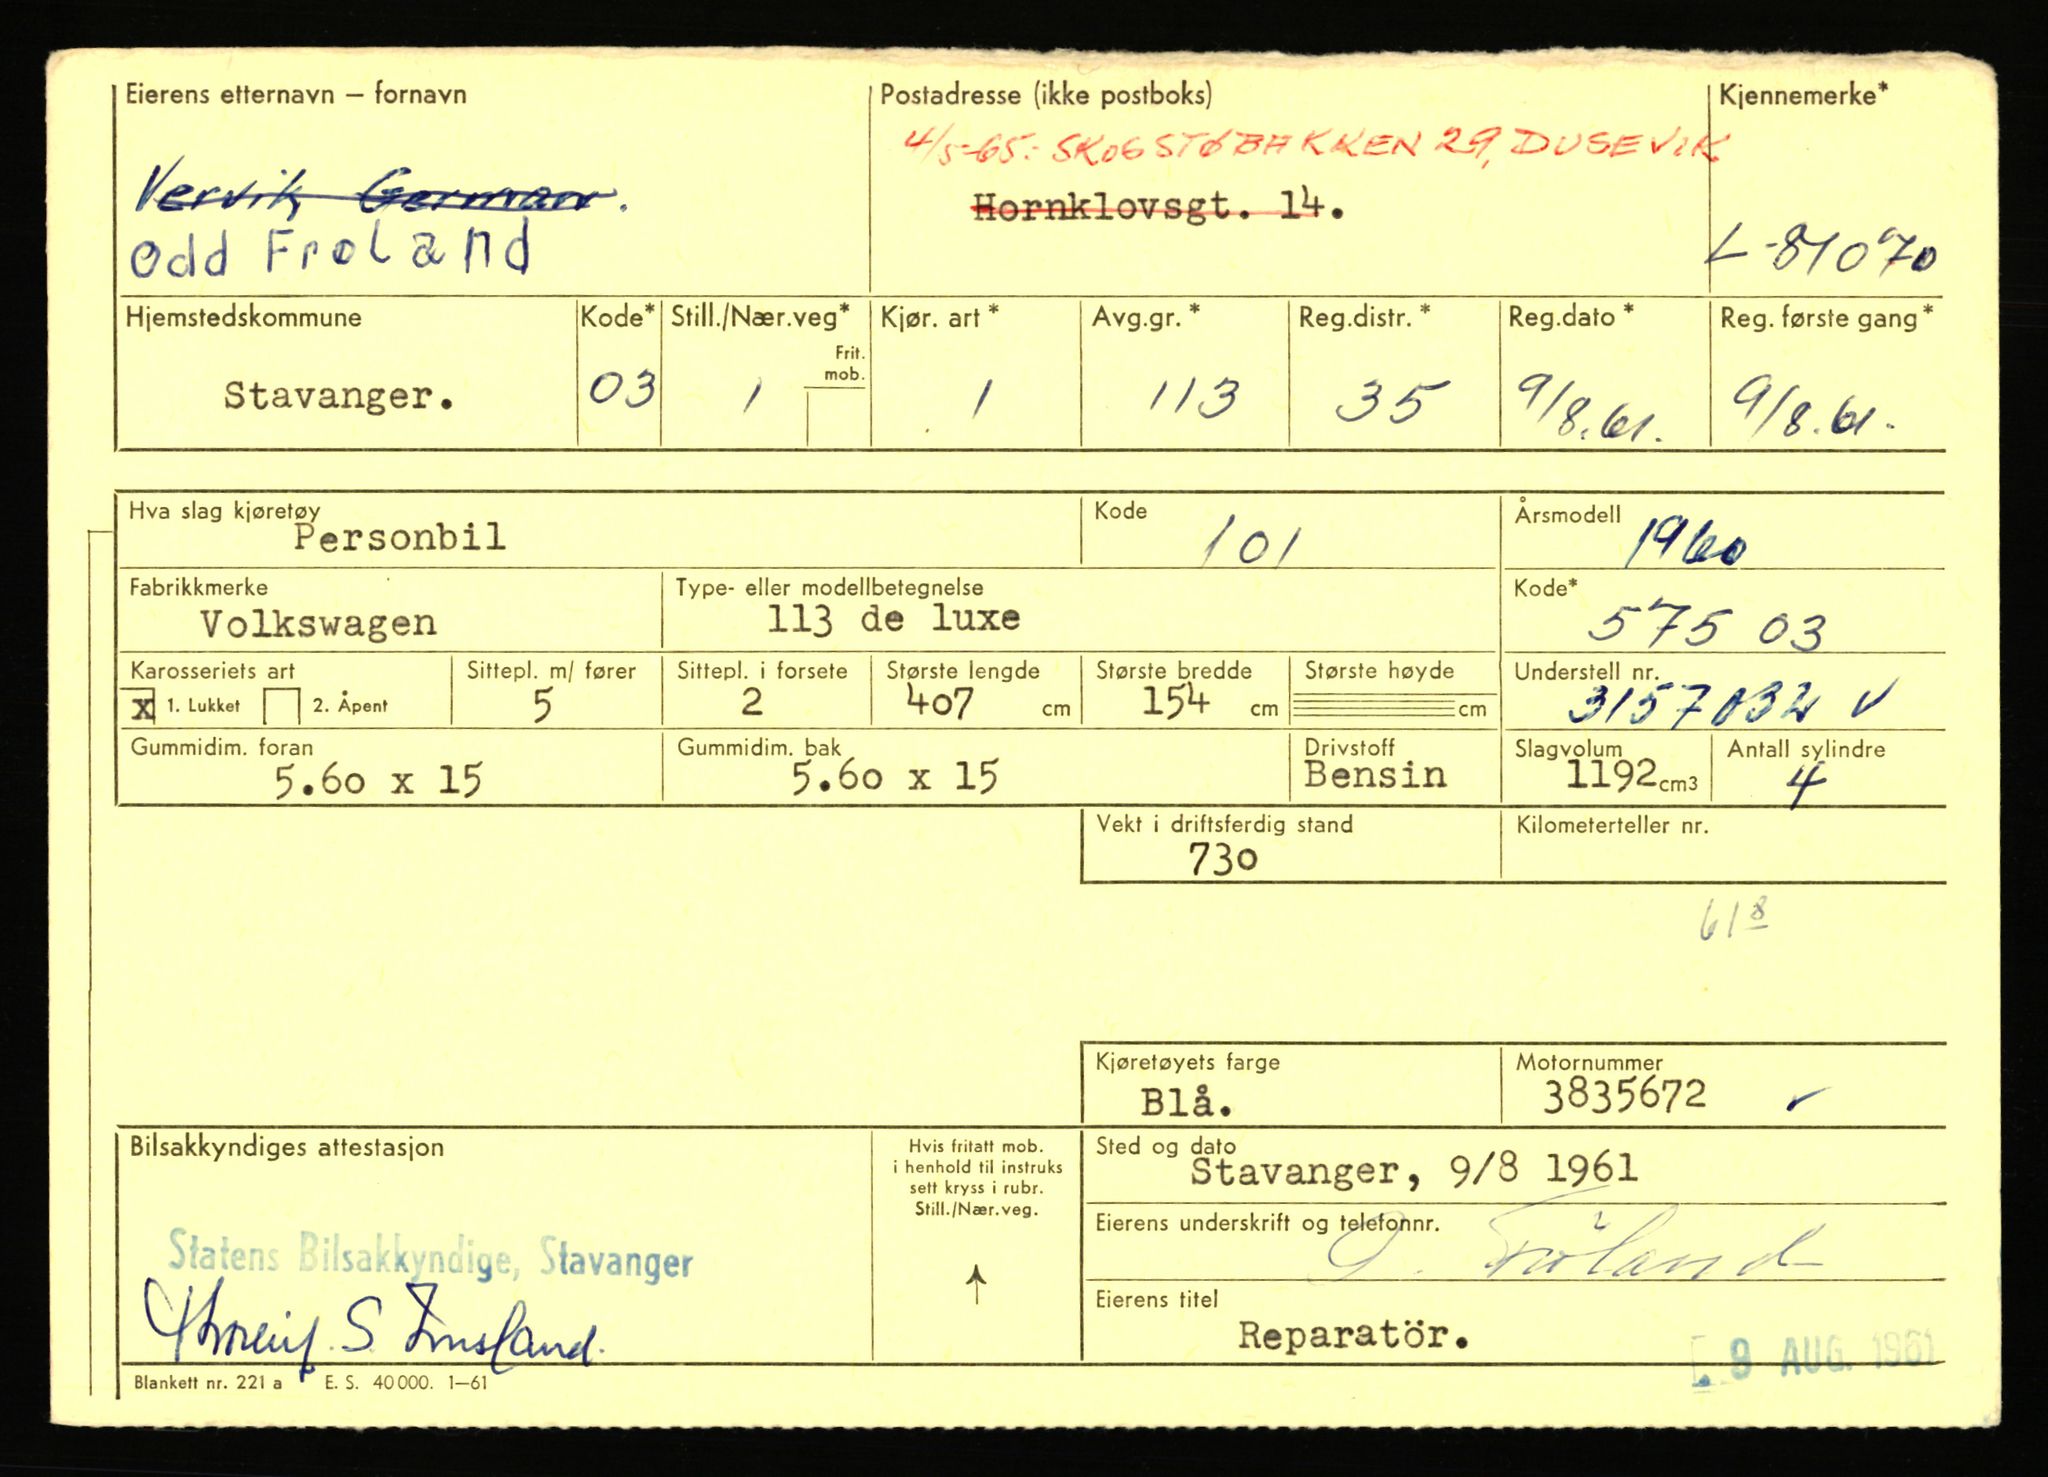 Eierens etternavn – fornavn
Postadresse (ikke postboks)
Kjennemerke*
4/5-65:- SKOGSTØBAKKEN 29, DUSEVIK
Vervik, German.
Hornklovsgt. 14.
Odd Froland
L-81070
Hjemstedskommune
Kode*
Still./Nær.veg*
Kjør. art*
Avg.gr.*
Reg.distr.*
Reg.dato*
Reg. første gang*
Frit.
mob.
Stavanger.
03
1
1
113
35
9/8.61.
9/8.61.
Hva slag kjøretøy
Personbil
Kode
101
Årsmodell
1960
Fabrikkmerke
Volkswagen
Type- eller modellbetegnelse
113 de luxe
Kode*
575 03
Karosseriets art
x 1. Lukket 2. Åpent
Sittepl. m/ fører
5
Sittepl. i forsete
2
Største lengde
407 cm
Største bredde
154 cm
Største høyde
cm
Understell nr.
3157032 v
Gummidim. foran
5.60 x 15
Gummidim. bak
5.60 x 15
Drivstoff
Bensin
Slagvolum
1192 cm3
Antall sylindre
4
Vekt i driftsferdig stand
730
Kilometerteller nr.
61 8
Kjøretøyets farge
Blå.
Motornummer
3835672
Bilsakkyndiges attestasjon
Hvis fritatt mob.
i henhold til instruks
sett kryss i rubr.
Still./Nær.veg.
Sted og dato
Stavanger, 9/8 1961
Statens Bilsakkyndige, Stavanger
Eierens underskrift og telefonnr.
O. Fröland
Eierens titel
Reparatör.
9 AUG. 1961
Blankett nr. 221 a E. S. 40 000. 1–61